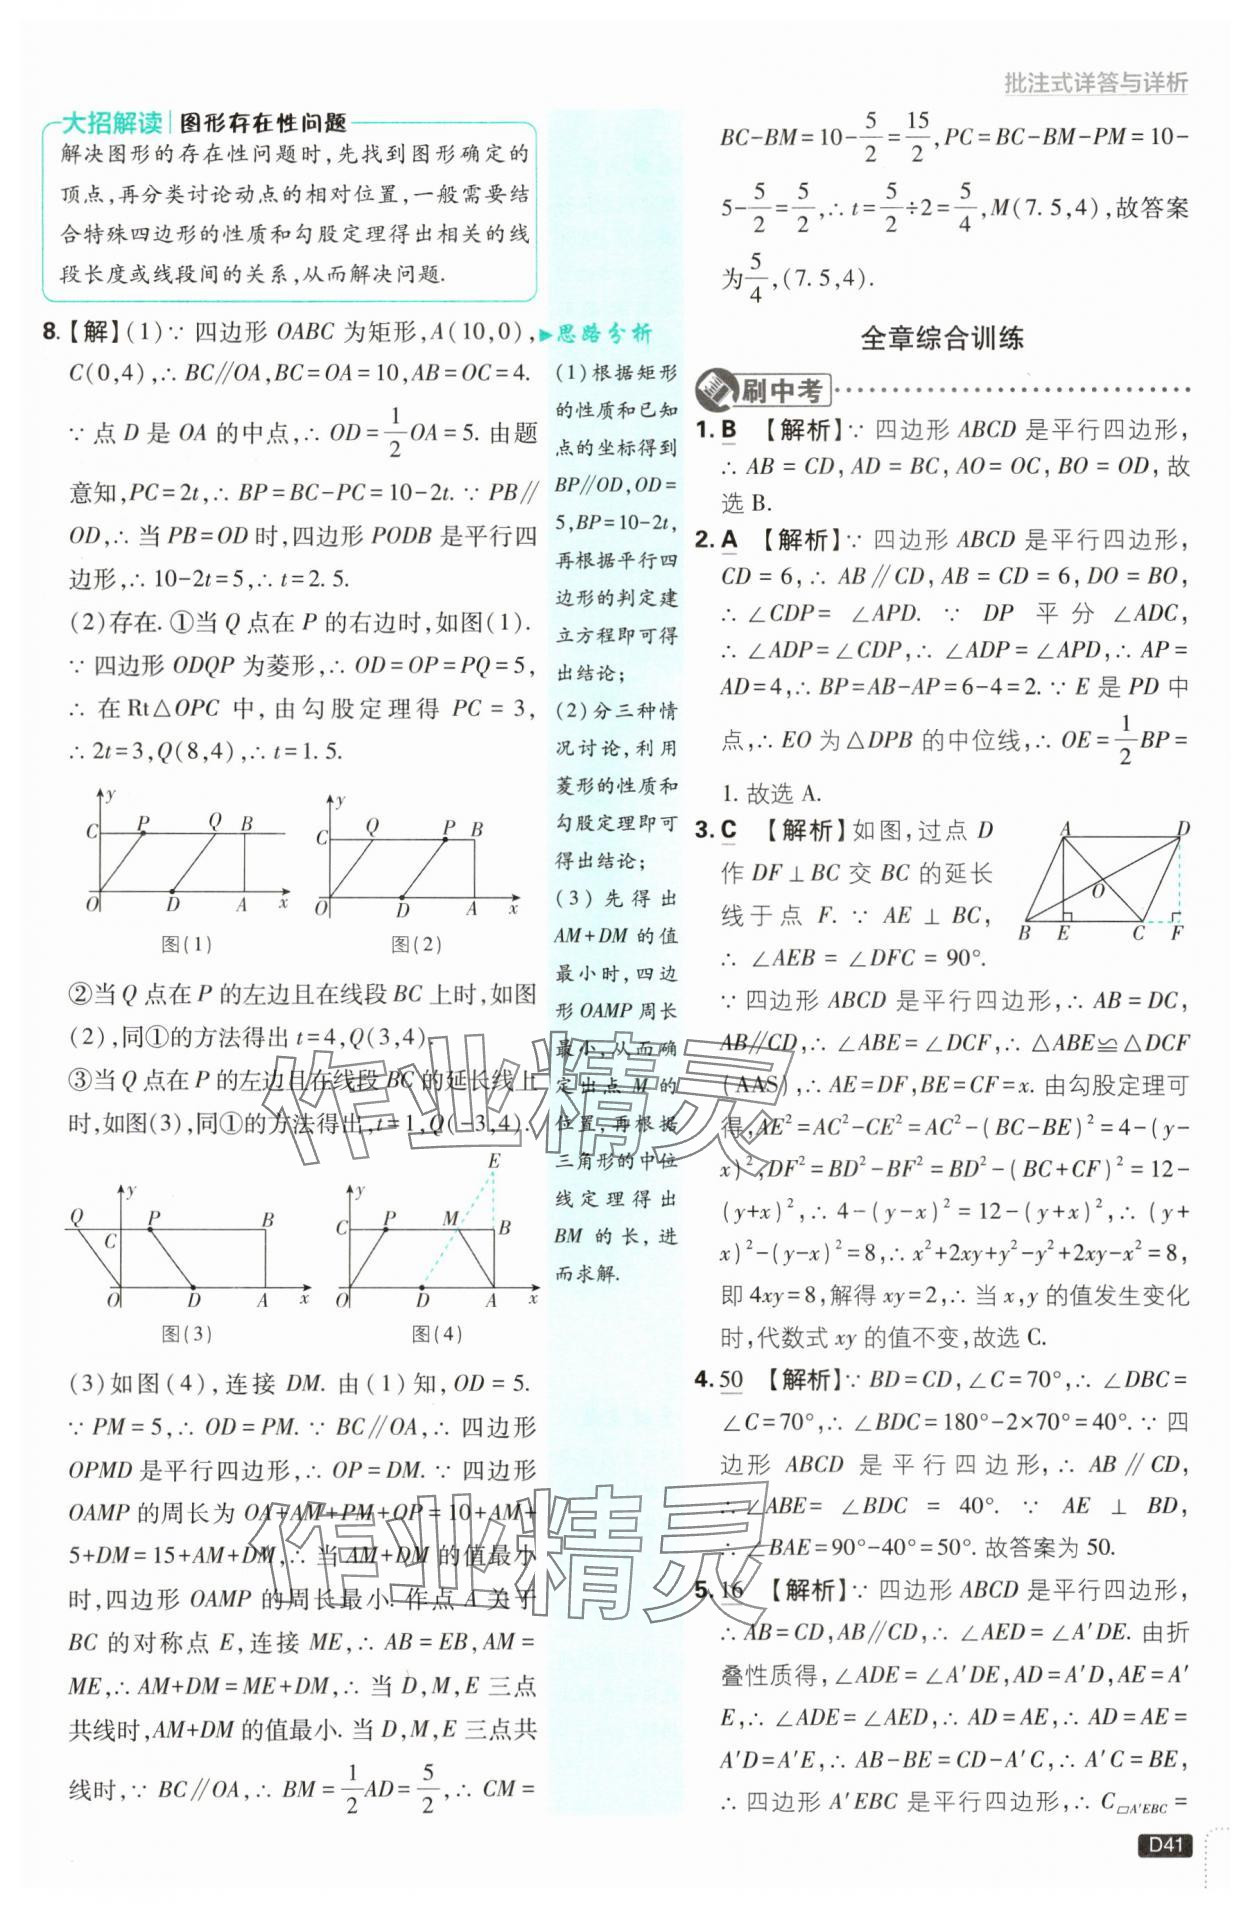 批注式详答与详析
大招解读 图形存在性问题
解决图形的存在性问题时,先找到图形确定的
顶点,再分类讨论动点的相对位置,一般需要结
合特殊四边形的性质和勾股定理得出相关的线
段长度或线段间的关系,从而解决问题.
8.【解】(1)∵ 四边形 OABC 为矩形,A(10,0),
C(0,4),∴ BC∥OA,BC=OA=10,AB=OC=4.
∵点 D 是 OA 的中点,∴ OD=1/2OA=5. 由题
意知,PC=2t,∴ BP=BC-PC=10-2t. ∵ PB∥
OD,∴ 当 PB=OD 时,四边形 PODB 是平行四
边形,∴ 10-2t=5,∴ t=2.5.
(2)存在. ①当 Q 点在 P 的右边时,如图(1).
∵ 四边形 ODQP 为菱形,∴ OD=OP=PQ=5,
∴ 在 Rt△OPC 中,由勾股定理得 PC=3,
∴ 2t=3,Q(8,4),∴ t=1.5.
y C P Q B O D A x
图(1)
y C Q P B O D A x
图(2)
②当 Q 点在 P 的左边且在线段 BC 上时,如图
(2),同①的方法得出 t=4,Q(3,4).
③当 Q 点在 P 的左边且在线段 BC 的延长线上
时,如图(3),同①的方法得出,t=1,Q(-3,4).
Q y P B C O D A x
图(3)
E y C P M B O D A x
图(4)
(3)如图(4),连接 DM. 由(1)知,OD=5.
∵ PM=5,∴ OD=PM. ∵ BC∥OA,∴ 四边形
OPMD 是平行四边形,∴ OP=DM. ∵ 四边形
OAMP 的周长为 OA+AM+PM+OP=10+AM+
5+DM=15+AM+DM,∴ 当 AM+DM 的值最小
时,四边形 OAMP 的周长最小. 作点 A 关于
BC 的对称点 E,连接 ME,∴ AB=EB,AM=
ME,∴ AM+DM=ME+DM,∴ 当 D,M,E 三点
共线时,AM+DM 的值最小. 当 D,M,E 三点共
线时,∵ BC∥OA,∴ BM=1/2AD=5/2,∴ CM=
思路分析
(1)根据矩形
的性质和已知
点的坐标得到
BP∥OD,OD=
5,BP=10-2t,
再根据平行四
边形的判定建
立方程即可得
出结论;
(2)分三种情
况讨论,利用
菱形的性质和
勾股定理即可
得出结论;
(3)先得出
AM+DM 的值
最小时,四边
形 OAMP 周长
最小,从而确
定出点 M 的
位置,再根据
三角形的中位
线定理得出
BM 的长,进
而求解.
BC-BM=10-5/2=15/2,PC=BC-BM-PM=10-
5-5/2=5/2,∴ t=5/2÷2=5/4,M(7.5,4),故答案
为5/4,(7.5,4).
全章综合训练
刷中考
1. B 【解析】∵ 四边形 ABCD 是平行四边形,
∴ AB=CD,AD=BC,AO=OC,BO=OD,故
选 B.
2. A 【解析】∵ 四边形 ABCD 是平行四边形,
CD=6,∴ AB∥CD,AB=CD=6,DO=BO,
∴ ∠CDP=∠APD. ∵ DP 平分∠ADC,
∴ ∠ADP=∠CDP,∴ ∠ADP=∠APD,∴ AP=
AD=4,∴ BP=AB-AP=6-4=2. ∵ E 是 PD 中
点,∴ EO 为△DPB 的中位线,∴ OE=1/2BP=
1. 故选 A.
3. C 【解析】如图,过点 D
作 DF⊥BC 交 BC 的延长
线于点 F. ∵ AE⊥BC,
∴ ∠AEB=∠DFC=90°.
A D O B E C F
∵ 四边形 ABCD 是平行四边形,∴ AB=DC,
AB∥CD,∴ ∠ABE=∠DCF,∴ △ABE≌△DCF
(AAS),∴ AE=DF,BE=CF=x. 由勾股定理可
得,AE²=AC²-CE²=AC²-(BC-BE)²=4-(y-
x)²,DF²=BD²-BF²=BD²-(BC+CF)²=12-
(y+x)²,∴ 4-(y-x)²=12-(y+x)²,∴ (y+
x)²-(y-x)²=8,∴ x²+2xy+y²-y²+2xy-x²=8,
即 4xy=8,解得 xy=2,∴ 当 x,y 的值发生变化
时,代数式 xy 的值不变,故选 C.
4. 50 【解析】∵ BD=CD,∠C=70°,∴ ∠DBC=
∠C=70°,∴ ∠BDC=180°-2×70°=40°. ∵ 四
边形 ABCD 是平行四边形,∴ AB∥CD,
∴ ∠ABE=∠BDC=40°. ∵ AE⊥BD,
∴ ∠BAE=90°-40°=50°. 故答案为 50.
5. 16 【解析】∵ 四边形 ABCD 是平行四边形,
∴ AB=CD,AB∥CD,∴ ∠AED=∠A′DE. 由折
叠性质得,∠ADE=∠A′DE,AD=A′D,AE=A′
E,∴ ∠ADE=∠AED,∴ AD=AE,∴ AD=AE=
A′D=A′E,∴ AB-BE=CD-A′C,∴ A′C=BE,
∴ 四边形 A′EBC 是平行四边形,∴ C▱A′EBC=
D41
作业精灵
作业精灵